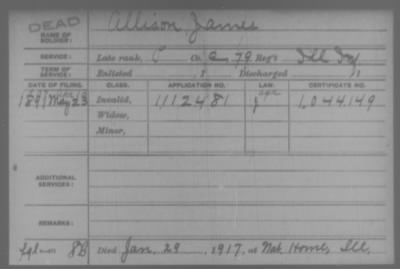 DEAD
Allison James
NAME OF SOLDIER:
SERVICE: Late rank, Co. G, 79 Reg't Ill Inf
TERM OF SERVICE: Enlisted , 1 Discharged , 1
DATE OF FILING. CLASS. APPLICATION NO. LAW. CERTIFICATE NO.
1891 May 23 Invalid, 1112481 1,044,149
Widow,
Minor,
ADDITIONAL SERVICES:
REMARKS:
Died Jan. 29 1917, at Nat Home, Ill.